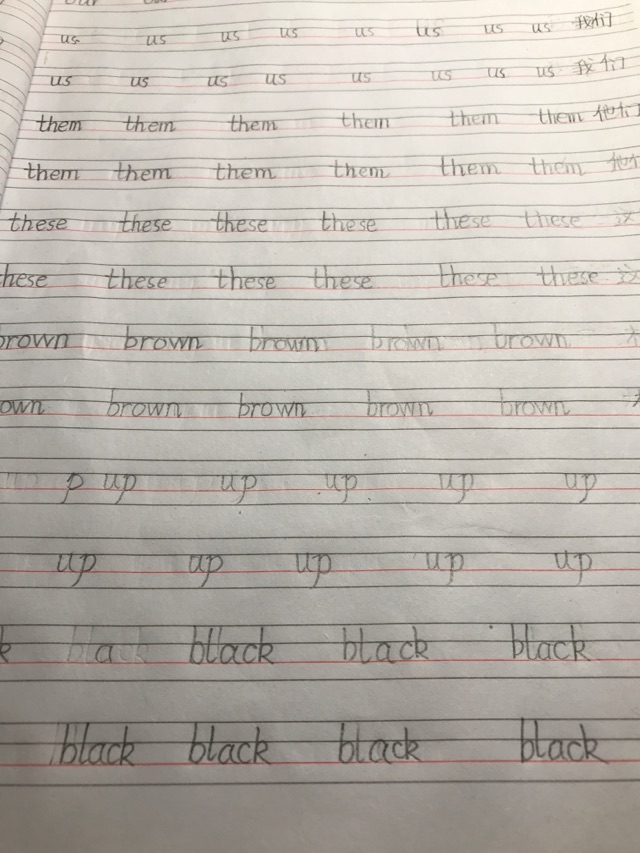 us us us us us us us us 我们
us us us us us us us us 我们
them them them them them them 他们
them them them them them them 他们
these these these these these these 这
hese these these these these these 这
brown brown brown brown brown
own brown brown brown brown
p up up up up up
up ap up up up
k black black black black
black black black black